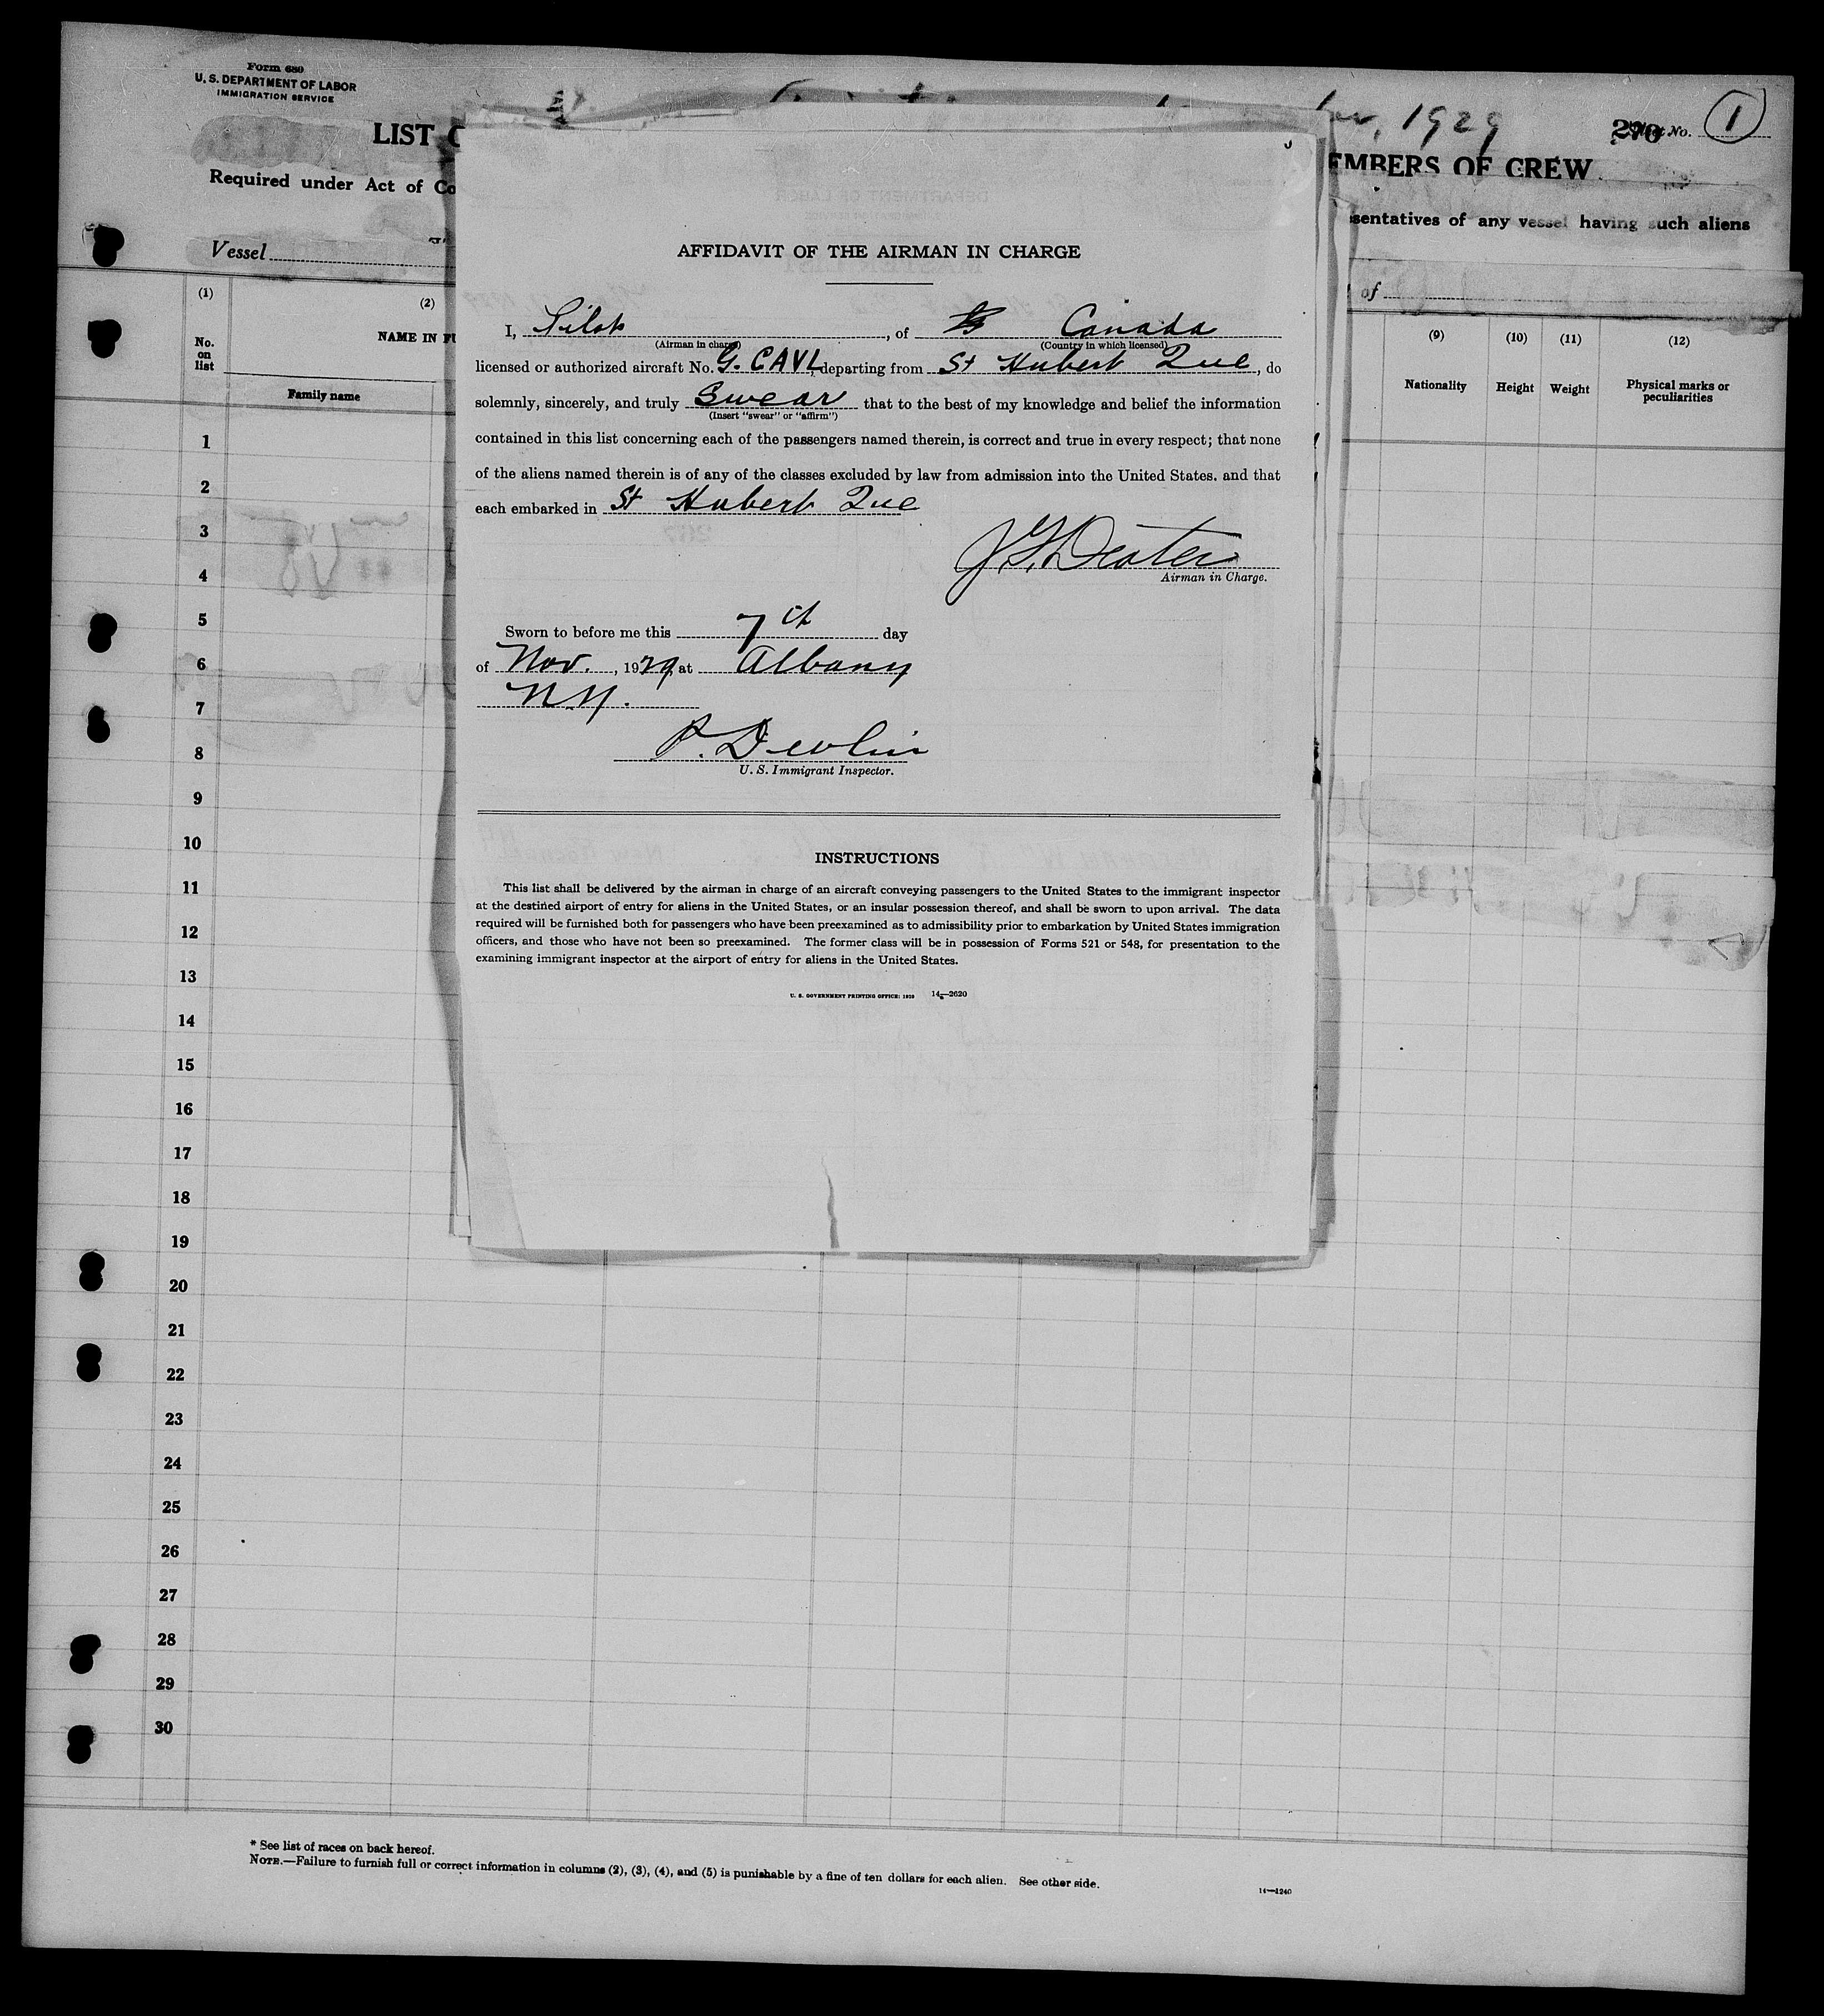 Form 689
U. S. DEPARTMENT OF LABOR
IMMIGRATION SERVICE
, 1929
No. 1
LIST
EMBERS OF CREW
Required under Act of Co
sentatives of any vessel having such aliens
Vessel
of
(1)
(2)
(9)
(10)
(11)
(12)
No. on list
NAME IN FU
Family name
Nationality
Height
Weight
Physical marks or peculiarities
AFFIDAVIT OF THE AIRMAN IN CHARGE
I, Pilot, of Canada
(Airman in charge)
(Country in which licensed)
licensed or authorized aircraft No. G. CAVL, departing from St Hubert Que, do
solemnly, sincerely, and truly Swear that to the best of my knowledge and belief the information
(Insert "swear" or "affirm")
contained in this list concerning each of the passengers named therein, is correct and true in every respect; that none
of the aliens named therein is of any of the classes excluded by law from admission into the United States, and that
each embarked in St Hubert Que
Airman in Charge.
Sworn to before me this 7th day
of Nov., 1929, at Albany
N.Y.
P. Devlin
U. S. Immigrant Inspector.
INSTRUCTIONS
This list shall be delivered by the airman in charge of an aircraft conveying passengers to the United States to the immigrant inspector
at the destined airport of entry for aliens in the United States, or an insular possession thereof, and shall be sworn to upon arrival. The data
required will be furnished both for passengers who have been preexamined as to admissibility prior to embarkation by United States immigration
officers, and those who have not been so preexamined. The former class will be in possession of Forms 521 or 548, for presentation to the
examining immigrant inspector at the airport of entry for aliens in the United States.
U. S. GOVERNMENT PRINTING OFFICE: 14—2620
1
2
3
4
5
6
7
8
9
10
11
12
13
14
15
16
17
18
19
20
21
22
23
24
25
26
27
28
29
30
* See list of races on back hereof.
NOTE.—Failure to furnish full or correct information in columns (2), (3), (4), and (5) is punishable by a fine of ten dollars for each alien. See other side.
14—1240